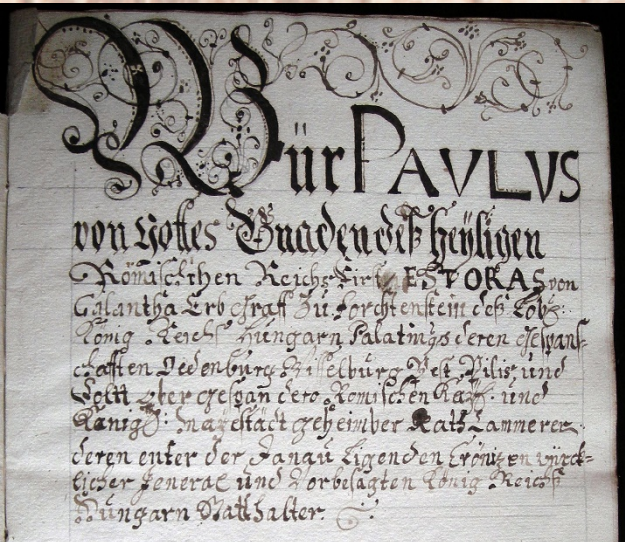 Wür PAVLVS
von Gottes Gnaden deß heyligen
Römischen Reichs Fürst ESTORAS von
Galantha Erb Graff zu Forchtenstein deß Löb:
König Reichs Hungarn Palatinus deren Gespan-
schafften Oedenburg Pest Pilis und
Soltt Ober Gespan dero Römischen Kays: und
Königl: Mayestädt geheimber Rath Cammerer
deren enter der Danau ligenden Cränitzen würck-
licher General und Vorbesagten König Reichs
Hungarn Statthalter